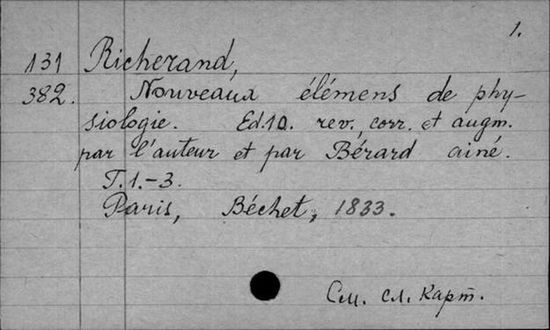 1.
131 Richerand,
382. Nouveaux élémens de phy-
siologie. Ed.10. rev., corr. et augm.
par l'auteur et par Bérard ainé.
T.1.-3.
Paris, Béchet, 1833.
См. сл. карт.